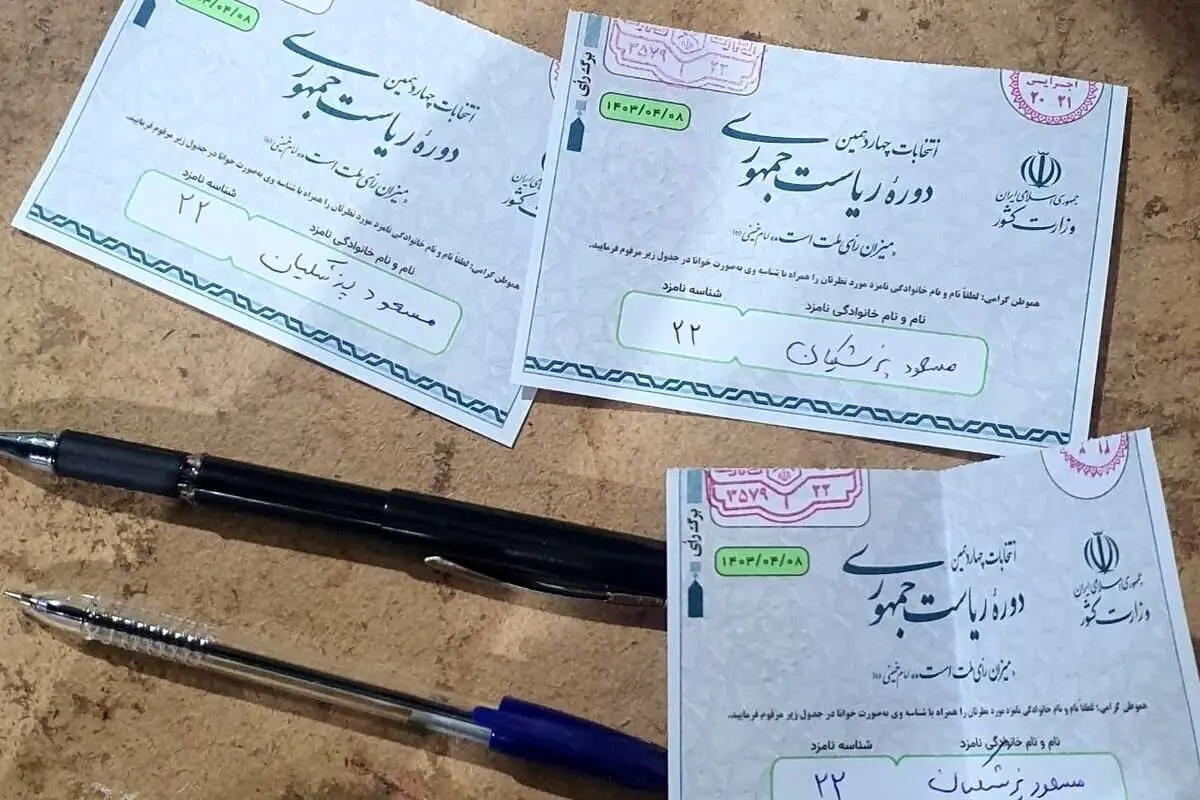 ۰۳/۰۴/۰۸
انتخابات چهاردهمین
دورهٔ ریاست جمهوری
«میزان رأی ملت است» امام خمینی (ره)
لطفاً نام و نام خانوادگی نامزد مورد نظرتان را همراه با شناسه وی به‌صورت خوانا در جدول زیر مرقوم فرمایید.
هموطن
نام و نام خانوادگی نامزد
شناسه نامزد
مسعود پزشکیان
۲۲
برگ رأی
۳۵۷۹ ۱ ۲۲
اجرایی
۲۰ ۲۱
۱۴۰۳/۰۴/۰۸
جمهوری اسلامی ایران
وزارت کشور
انتخابات چهاردهمین
دورهٔ ریاست جمهوری
«میزان رأی ملت است» امام خمینی (ره)
هموطن گرامی؛ لطفاً نام و نام خانوادگی نامزد مورد نظرتان را همراه با شناسه وی به‌صورت خوانا در جدول زیر مرقوم فرمایید.
نام و نام خانوادگی نامزد
شناسه نامزد
مسعود پزشکیان
۲۲
برگ رأی
۳۵۷۹ ۱ ۲۲
۱۴۰۳/۰۴/۰۸
جمهوری اسلامی ایران
وزارت کشور
انتخابات چهاردهمین
دورهٔ ریاست جمهوری
«میزان رأی ملت است» امام خمینی (ره)
هموطن گرامی؛ لطفاً نام و نام خانوادگی نامزد مورد نظرتان را همراه با شناسه وی به‌صورت خوانا در جدول زیر مرقوم فرمایید.
نام و نام خانوادگی نامزد
شناسه نامزد
مسعود پزشکیان
۲۲